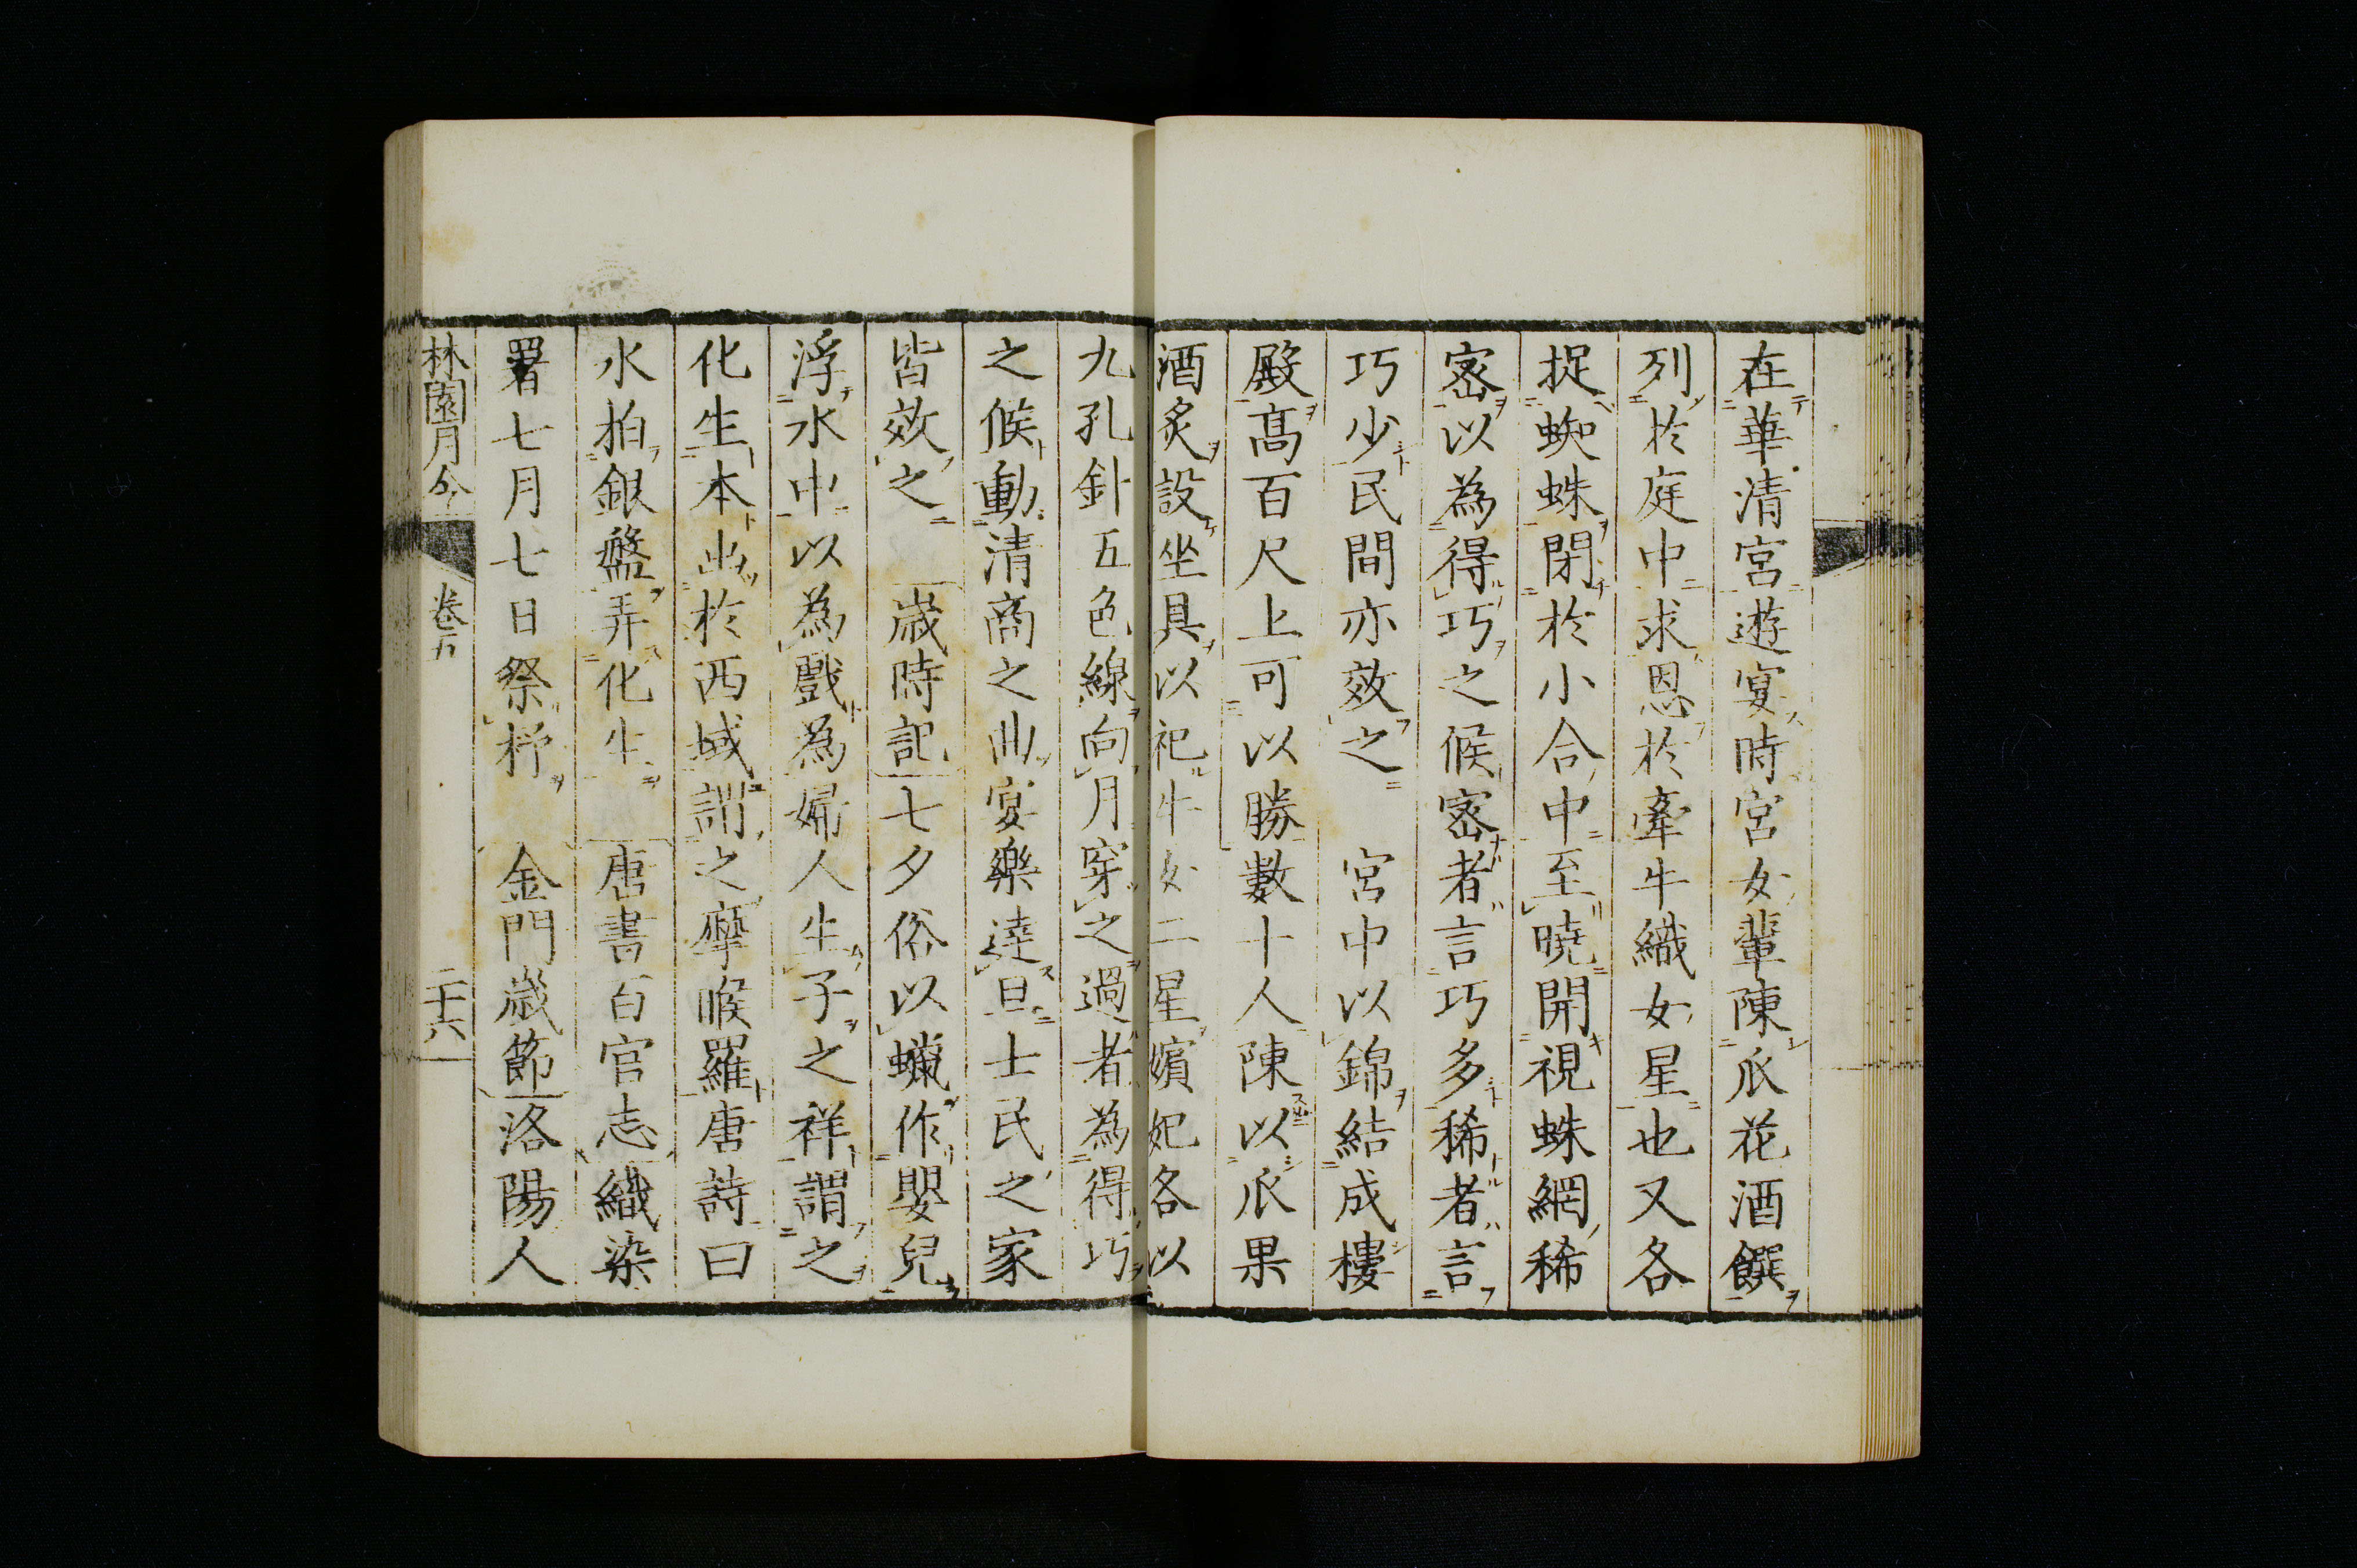 在華清宮遊宴時宮女輩陳瓜花酒饌
列於庭中求恩於牽牛織女星也又各
捉蜘蛛閉於小合中至曉開視蛛網稀
密以為得巧之候密者言巧多稀者言
巧少民間亦效之　宮中以錦結成樓
殿高百尺上可以勝數十人陳以瓜果
酒炙設坐具以祀牛女二星嬪妃各以
九孔針五色線向月穿之過者為得巧
之候動清商之曲宴樂達旦士民之家
皆效之　歲時記七夕俗以蠟作嬰兒
浮水中以為戲為婦人生子之祥謂之
化生本出於西域謂之摩睺羅唐詩曰
水拍銀盤弄化生　唐書百官志織染
署七月七日祭杼　金門歲節洛陽人
林園月令　卷五　二十六